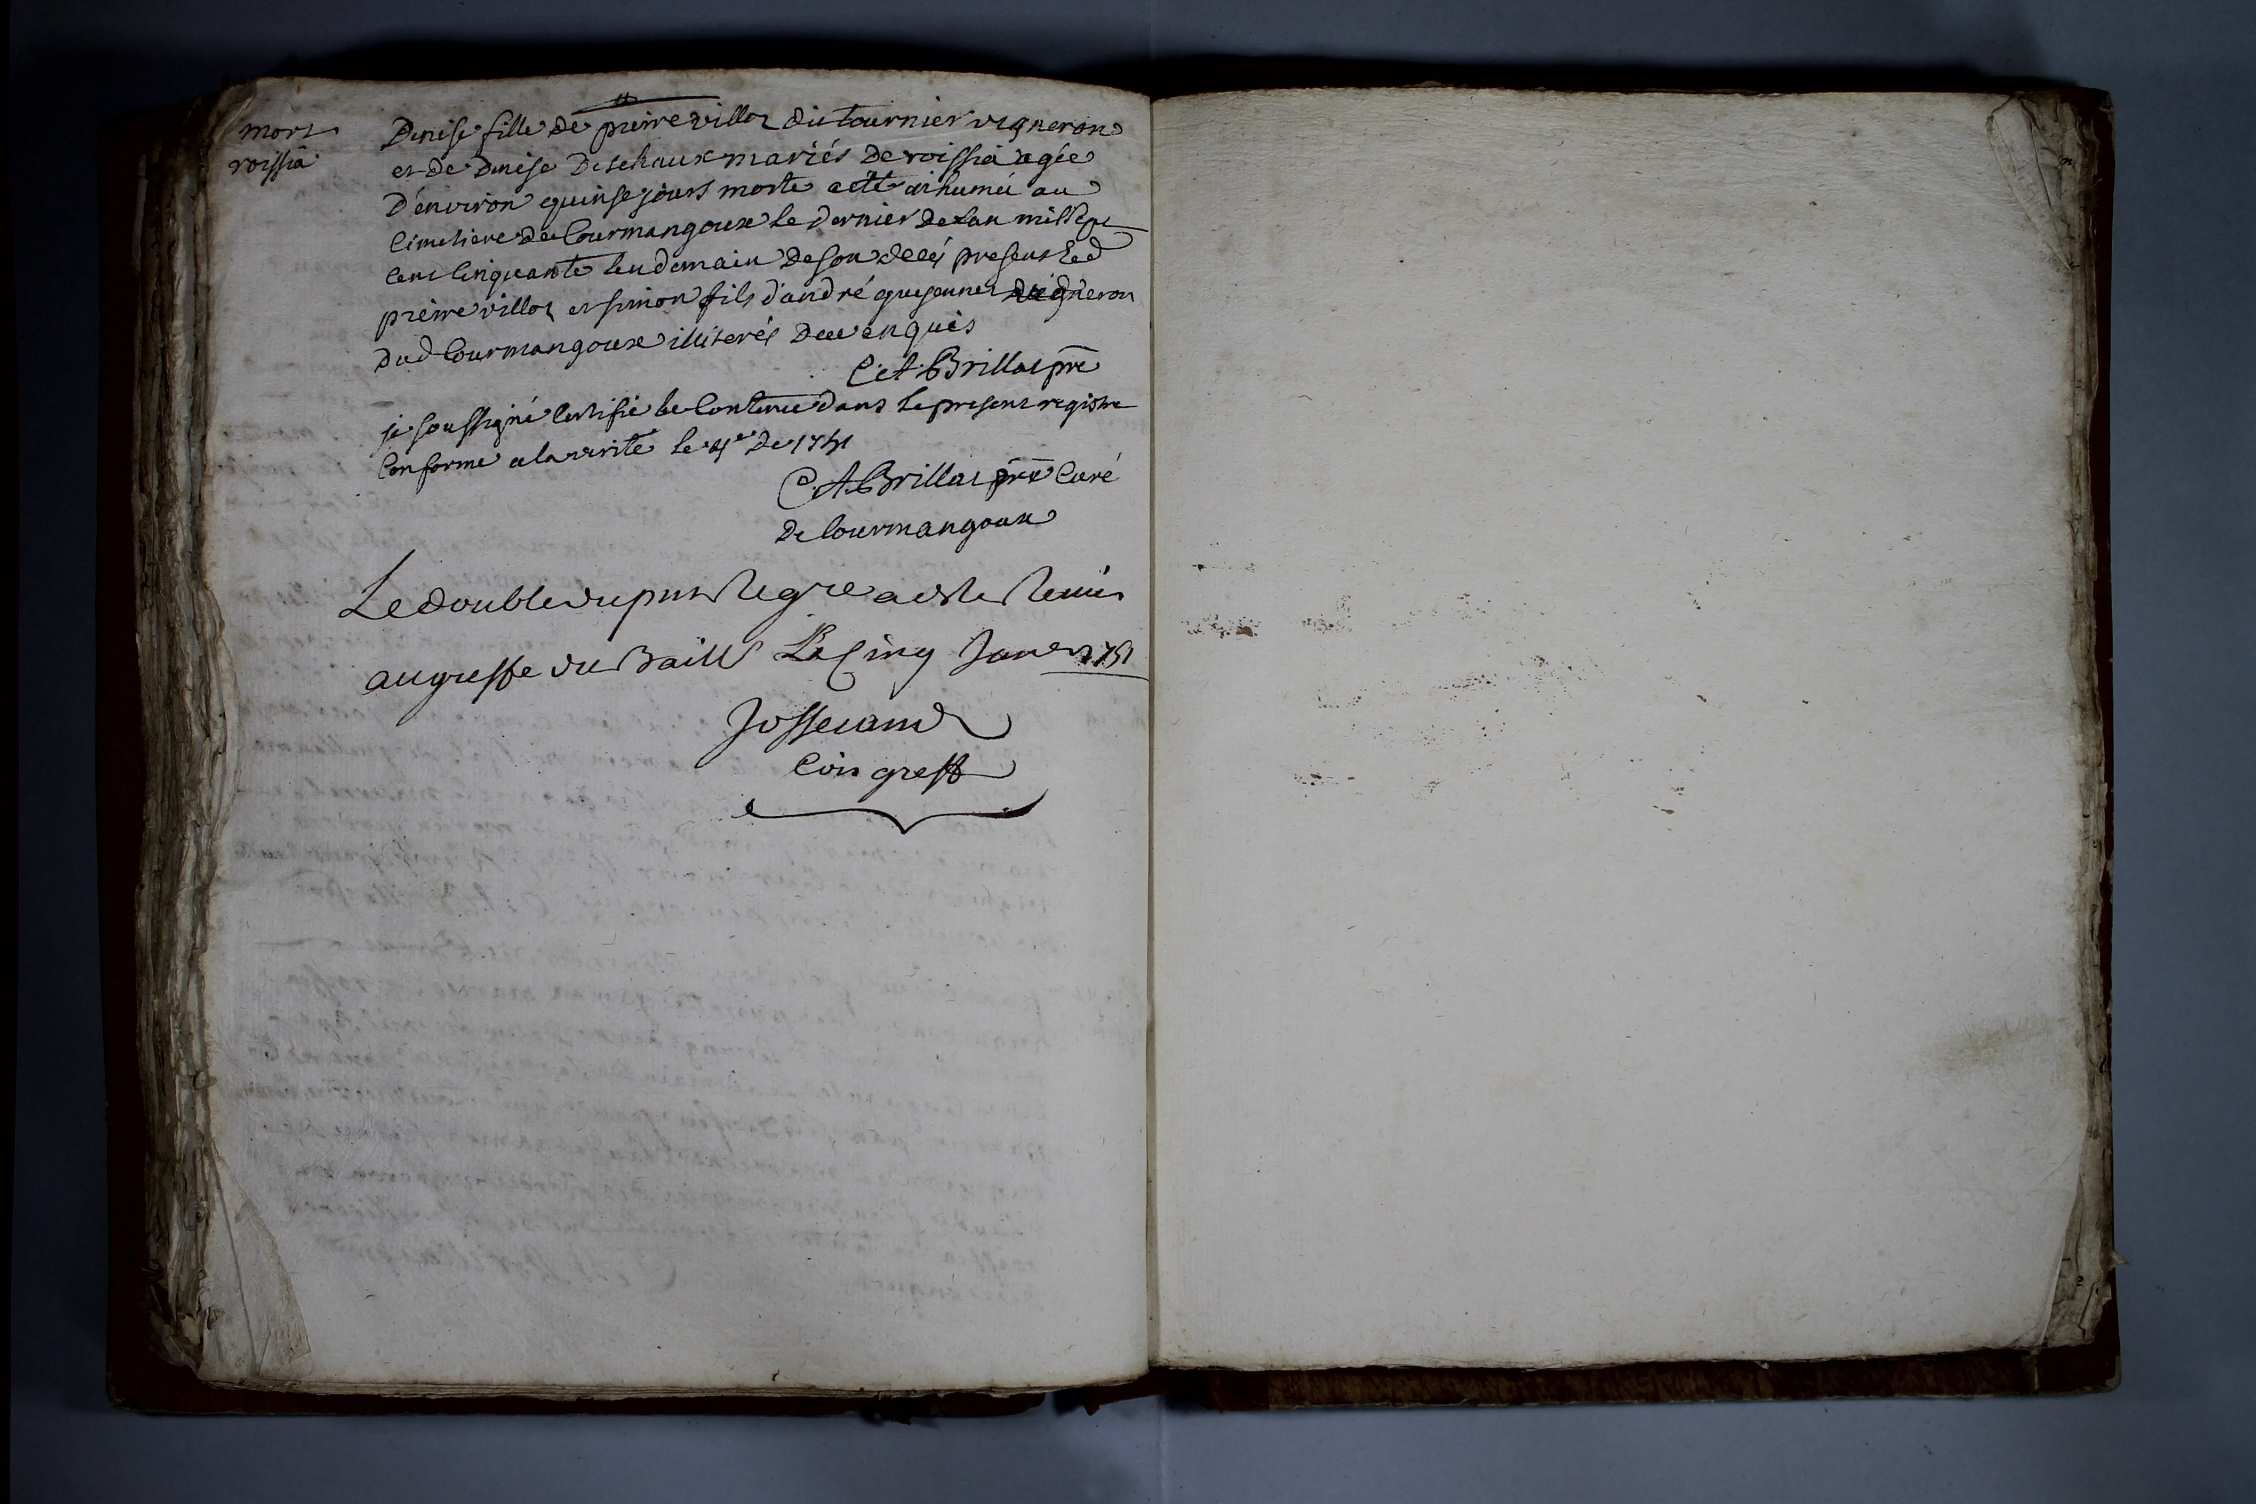 mort
roissia
Denise fille de pierre villot dit tournier vigneron
et de Denise Dechaux mariés de roissia agée
D'environ quinse jours morte a été inhumée au
Cimetiere de Courmangoux le dernier de l'an mil sept
cent cinquante lendemain de son décés presens led
pierre villot et simon fils d'andré vigneron
dud Courmangoux illiterés de ce enquis
C. A. Brillat pre
je soussigné certifie le contenu dans le present registre
conforme a la verité le 4e de 1751
C. A. Brillat pre curé
de Courmangoux
Le double du pnt Regre a esté Remis
au greffe du Baill Le Cinq Janer 1751
Josserand
Com greff